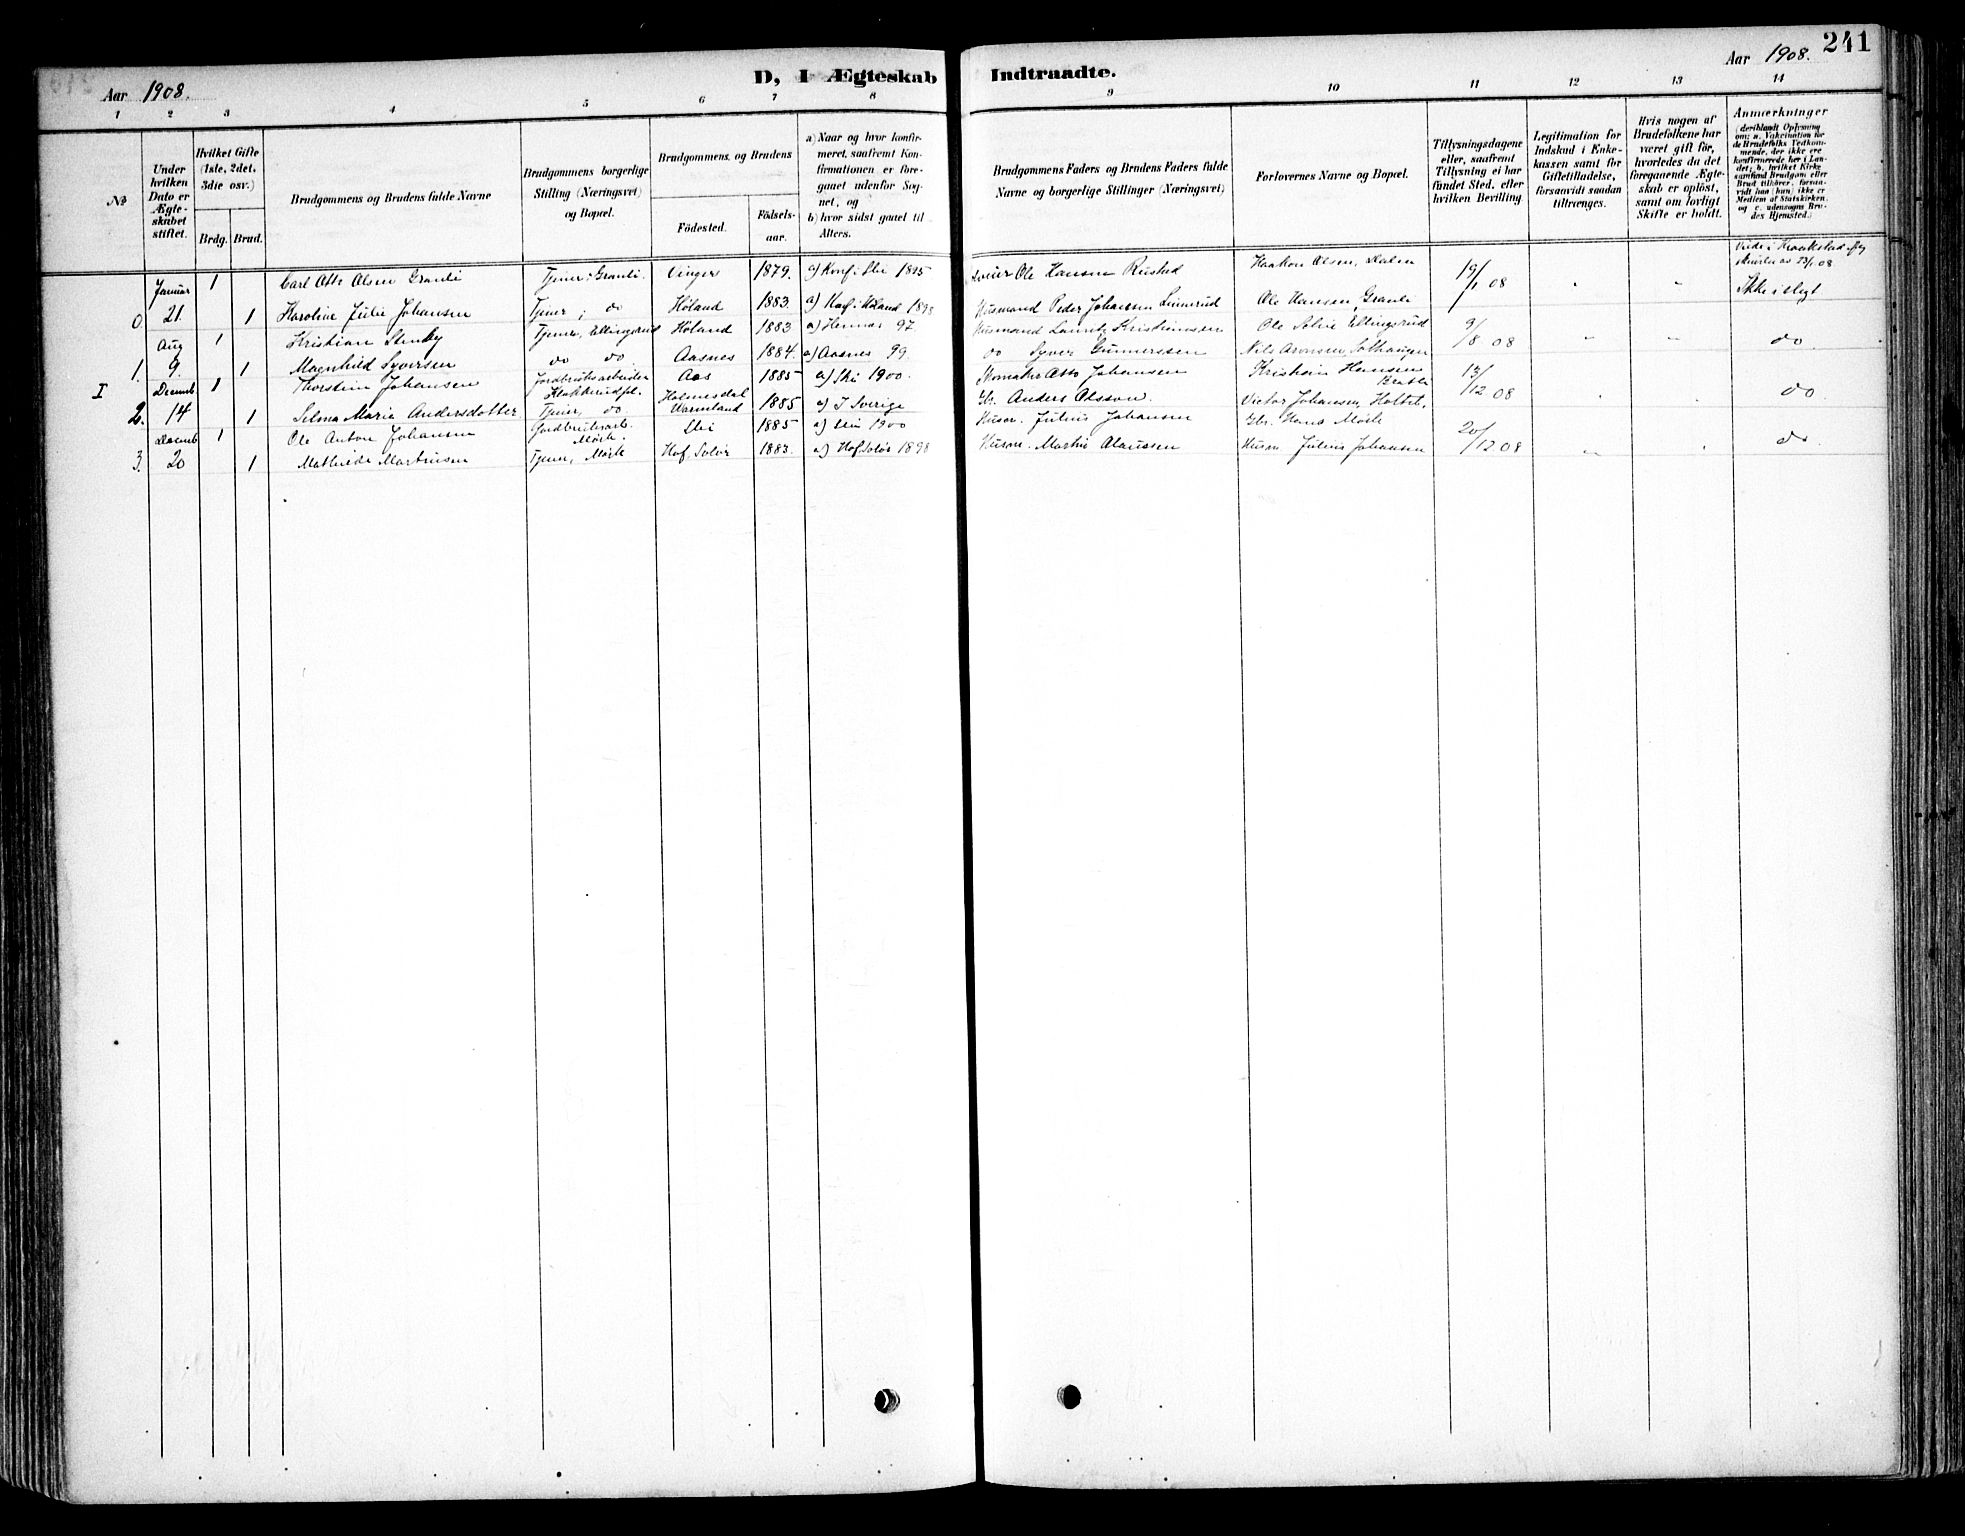 Aar 1908.
D, I Ægteskab
Indtraadte.
Aar 1908.
241
1 2 3 4 5 6 7 8 9 10 11 12 13 14
No
Under hvilken Dato er Ægteskabet stiftet.
Hvilket Gifte (1ste, 2det, 3die osv.)
Brdg. Brud.
Brudgommens og Brudens fulde Navne
Brudgommens borgerlige Stilling (Næringsvei) og Bopæl.
Brudgommens og Brudens
Födested.
Födselsaar.
a) Naar og hvor konfirmeret, saafremt Konfirmationen er foregaaet udenfor Sognet, og
b) hvor sidst gaaet til Alters.
Brudgommens Faders og Brudens Faders fulde Navne og borgerlige Stillinger (Næringsvei)
Forlovernes Navne og Bopæl.
Tillysningsdagene eller, saafremt Tillysning ei har fundet Sted, efter hvilken Bevilling.
Legitimation for Indskud i Enkekassen samt for Giftetilladelse, forsaavidt saadan tiltrænges.
Hvis nogen af Brudefolkene har været gift för, hvorledes da det foregaaende Ægteskab er oplöst, samt om lovligt Skifte er holdt.
Anmerkninger (deriblandt Oplysning om: a. Vakcination for de Brudefolks Vedkommende, der ikke ere konfirmerede her i Landet; b. hvilket Kirkesamfund Brudgom eller Brud tilhörer, forsaavidt han (hun) ikke er Medlem af Statskirken, og c. udensogns Brudes Hjemsted.)
Januar 1 Carl Otto Olsen Granli Tjener, Granli. Vinger 1879. a) Konf i Ski 1895 Ole Hansen Rustad Haakon Olsen, Dalen 19/1 08 Viede i Kraakstad
0 21. 1 Karoline Julie Johansen Tjener, do Höland 1883 a) Konf. i Höland 1898 Husmand Peder Johansen Linnerud Ole Hansen, Granli Ikke i slegt
Aug 1 Kristian Stenby Tjener, Ellingsrud Höland 1883 a) Hemnes 97 Husmand Lauritz Kristiansen Ole Solvie Ellingsrud 9/8 08
1. 9. 1 Magnhild Syversen do do. Aasnes 1884. a) Aasnes 99. do Syver Gunnerssen Nils Aronsen, Solhaugen do.
I Decemb 1 Thorstein Johansen Jordbrugsarbeider Aas 1885 a) Ski 1900. Skomaker Otto Johansen Kristian Hansen 13/12 08
2. 14 1 Selma Maria Andersdotter Tjener, do Holmesdal Värmland 1885 a) I Sverige Gbr. Anders Olsson. Victor Johansen, Holtet. do
Decemb 1 Ole Anton Johansen Jordbrugsarb. Mörk. Ski 1885 a) Ski 1900 Huseier. Julius Johansen Gbr. Hans Mörk 20/12 08
3. 20 1 Mathilde Martinsen Tjener, Mörk Hof, Solör 1883. a) Hof, Solör 1898 Husm. Martin Olaussen Husm Julius Johansen do